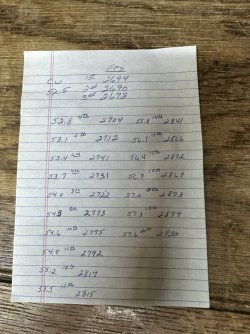 FPS
1st 2694
CW 2nd 2690
52.5 3rd 2673
52.8 4th 2704 55.8 15th 2841
53.1 5th 2712 56.1 2866
53.4 6th 2741 56.4 2872
53.7 7th 2731 56.7 2869
54.0 8th 2722 57.0 2873
54.3 9th 2773 57.3 2899
54.6 10th 2775 57.6 2920
54.9 11th 2792
55.2 12th 2817
55.5 13th 2815